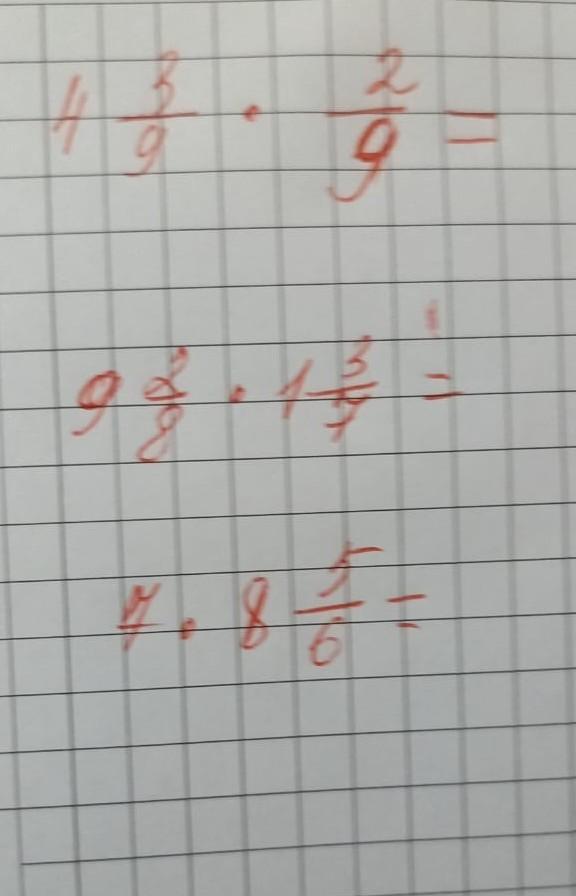 4 3/9 · 2/9 =
9 2/8 · 1 3/7 =
7 · 8 5/6 =